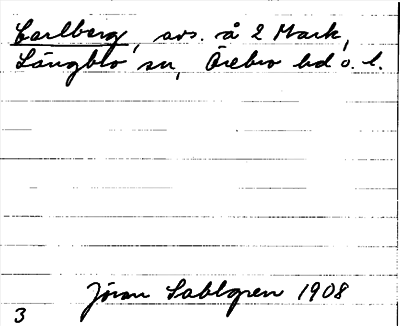 Carlberg, avs. å 2 Mark,
Längbro sn, Örebro hd o. l.
Jöran Sahlgren 1908
3